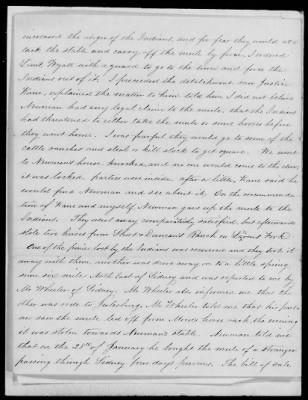 increased the anger of the Indians, and for fear they would at-
tack the stable and carry off the mule by force, I ordered
Lieut. Wyatt with a guard to go to the town and force the
Indians out of it. I preceded the detachment, saw Justice
Kane, explained the matter to him, told him I did not believe
Newman had any legal claim to the mule, that the Indians
had threatened to either take the mule or some horses before
they went home. I was fearful they would go to some of the
cattle ranches and steal or kill stock to get square. We went
to Newmans house, knocked, and no one would come to the door,
it was locked, parties were inside. after a little, Kane said he
would find Newman and see about it. On the recommenda-
tion of Kane and myself Newman gave up the mule to the
Indians. They went away comparatively satisfied, but afterwards
stole two horses from Ranch on Fork.
One of the ponies lost by the Indians was recovered and they took it
away with them, another was seen away on to a little spring
some six miles North East of Sidney and was reported to me by
Mr Wheeler of Sidney. Mr Wheeler also informed me that the
other was rode to Julesburg. Mr Wheeler told me that his
saw the mule led off from house early the morning
it was stolen towards Newmans stable. Newman told me
that on the 25th of January he bought the mule of a stranger
passing through Sidney four days previous. The bill of sale